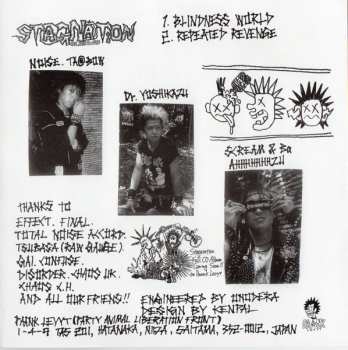 STAGNATION
1. BLINDNESS WORLD
2. REPEATED REVENGE
NOISE. TA@BOW
Dr. YOSHIKAZU
SCREAM & Ba
AHHHHHHHZU
THANKS TO
EFFECT. FINAL.
TOTAL NOISE ACCORD.
TSUBASA (RAW GAUGE).
GAI. CONFUSE.
DISORDER. CHAOS UK.
CHAOS C.H.
AND ALL OUR FRIENS!!
Stagnation
Full CD Album
Coming Soon
ENGINEERED BY ONODERA
DESIGN BY KENTAL
PUNK LEVYT (PARTY ANIMAL LIBERATION FRONT)
SAITAMA, 352-0012, JAPAN